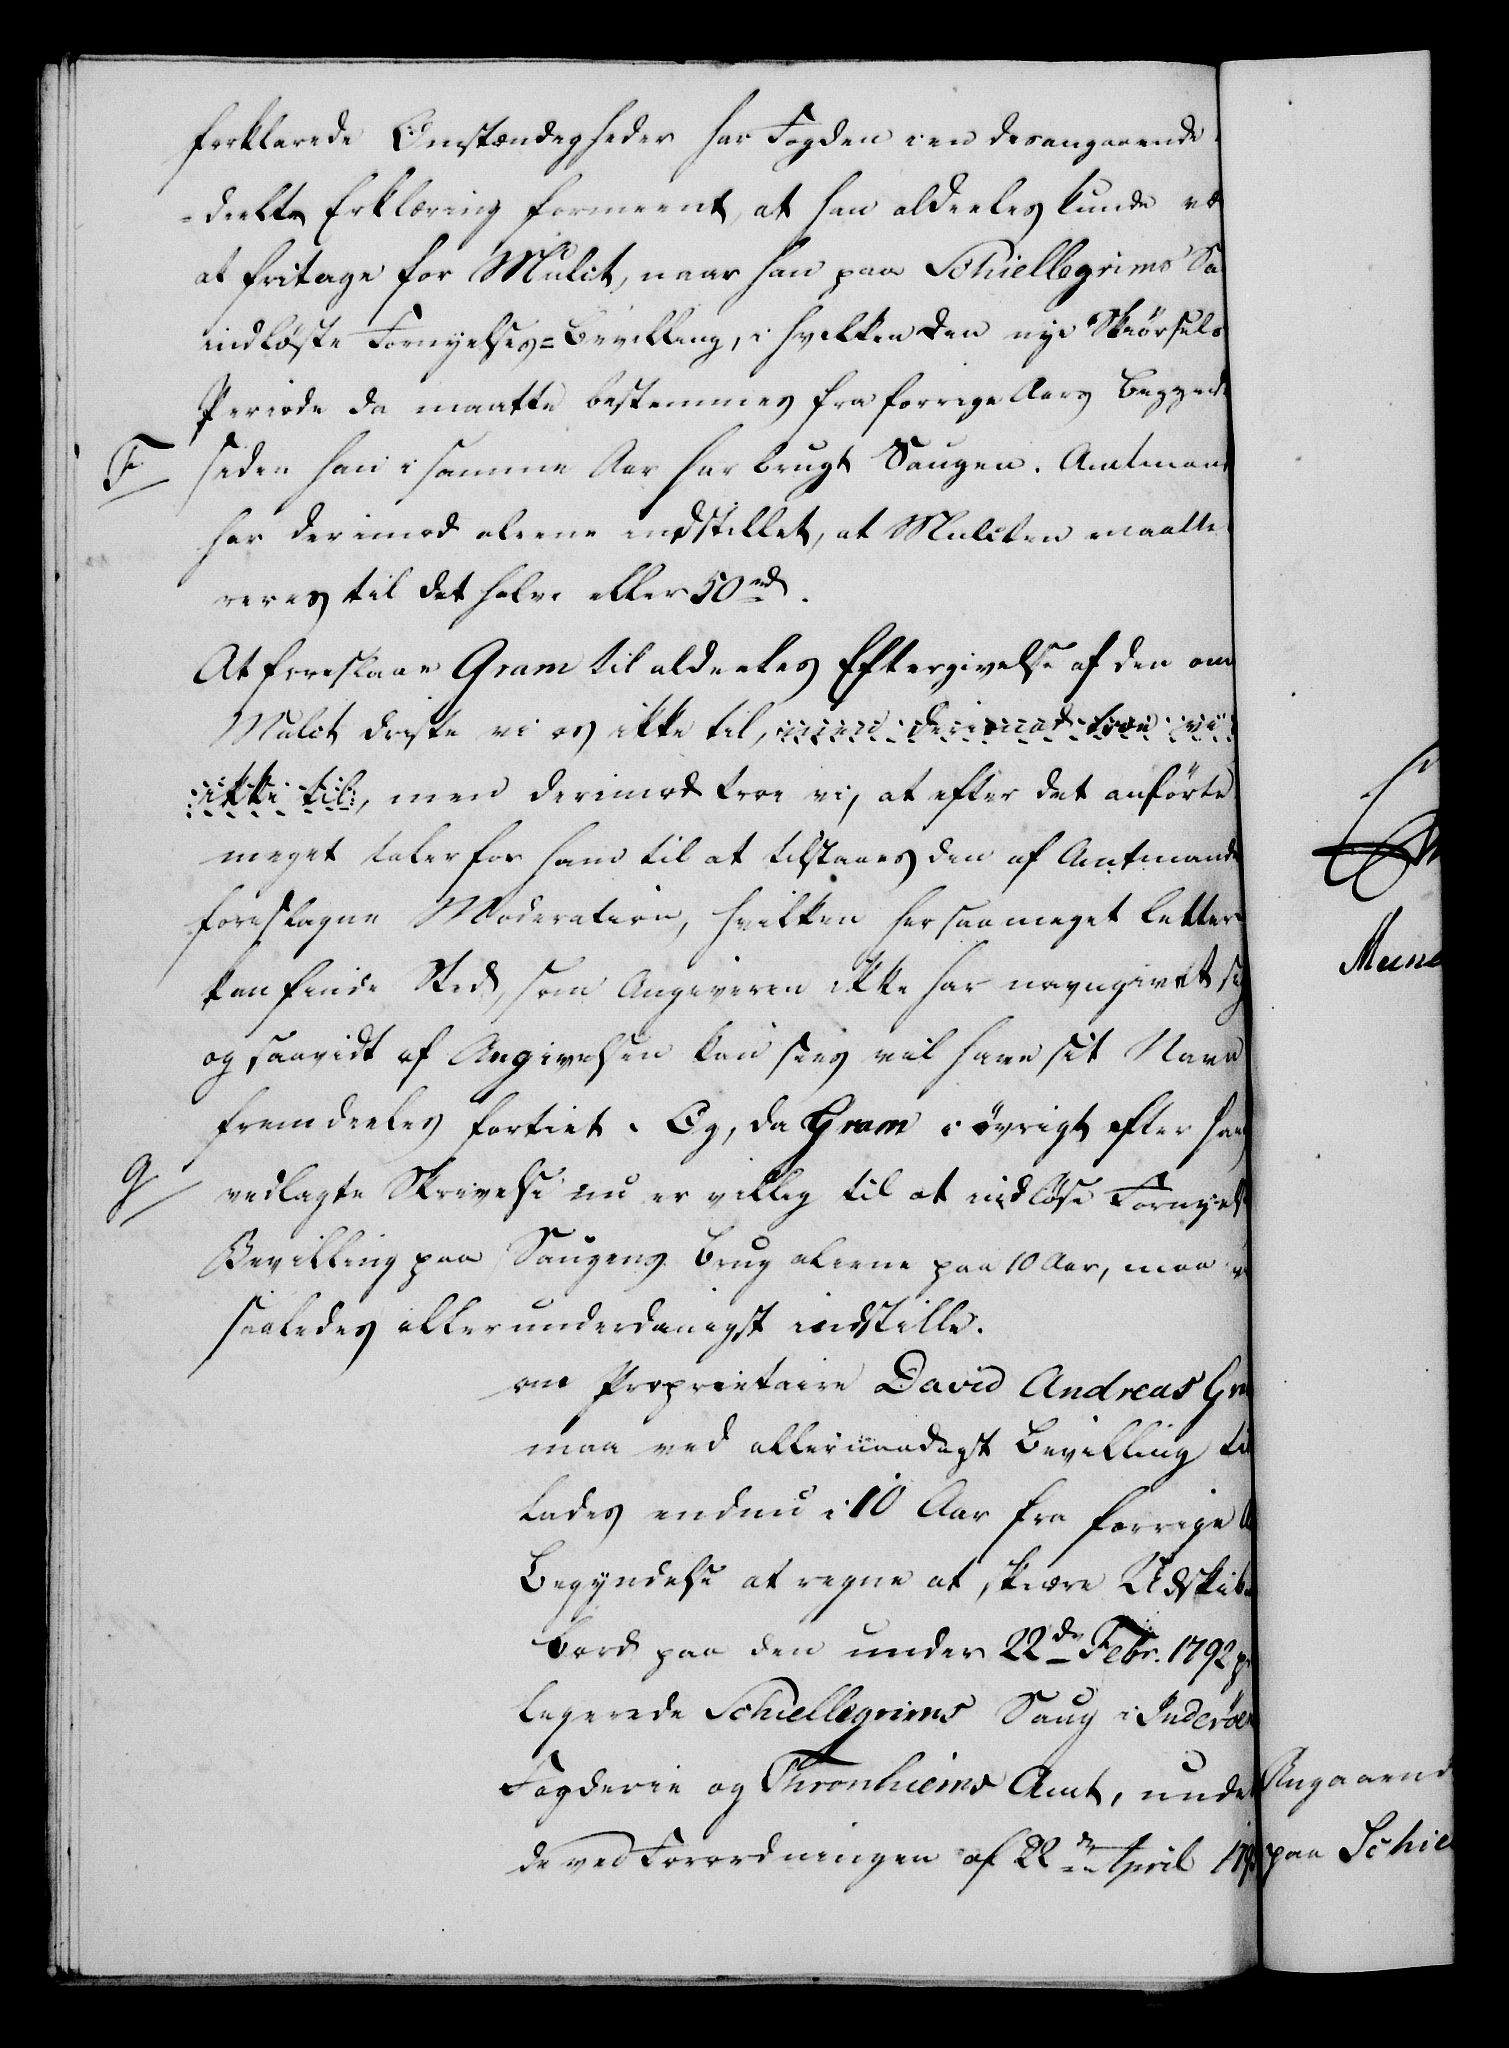 forklarede Omstændigheder har Fogden i en desangaaende
-deelte Erklæring formeent, at han aldeeles kunde væ
at fritage for Mulct, naar han paa Schiellegrims Sa
indløste Fornyelses-Bevilling, i hvilken den nye Skiörsels
Periode da maatte bestemmes fra forrige Aars Begynd
F siden han i samme Aar har brugt Saugen. Amtmand
har derimod aleene indstillet, at Mulcten maatte
reres til det halve eller 50 rd.
At foreslaae Gram til aldeeles Eftergivelse af den om
Mulct driste vi os ikke til, men derimod troe vi
ikke til, men derimod troe vi, at efter det anførte
meget taler for ham til at tilstaaes den af Amtmande
foreslagne Moderation, hvilken her saa meget lettere
kan finde Sted, som Angiveren ikke har navngivet sig
og saavidt af Angivelsen kan sees vil have sit Navn
fremdeeles fortiet. Og, da Gram i øvrigt efter han
G vedlagte Skrivelse nu er villig til at indløse Fornyels
Bevilling paa Saugens Brug aleene paa 10 Aar, maa v
saaledes allerunderdanigst indstille.
om Proprietaire David Andreas Gra
maa ved allernaadigst Bevilling til
lades endnu i 10 Aar fra forrige A
Begyndelse at regne at skiære Udskib
bord paa den under 22de Febr. 1792 pr
legerede Schiellegrims Saug i Inderøe
Fogderie og Thronhiems Amt, unde
de ved Forordningen af 22de April 179
Mune
Angaaend
paa Schie